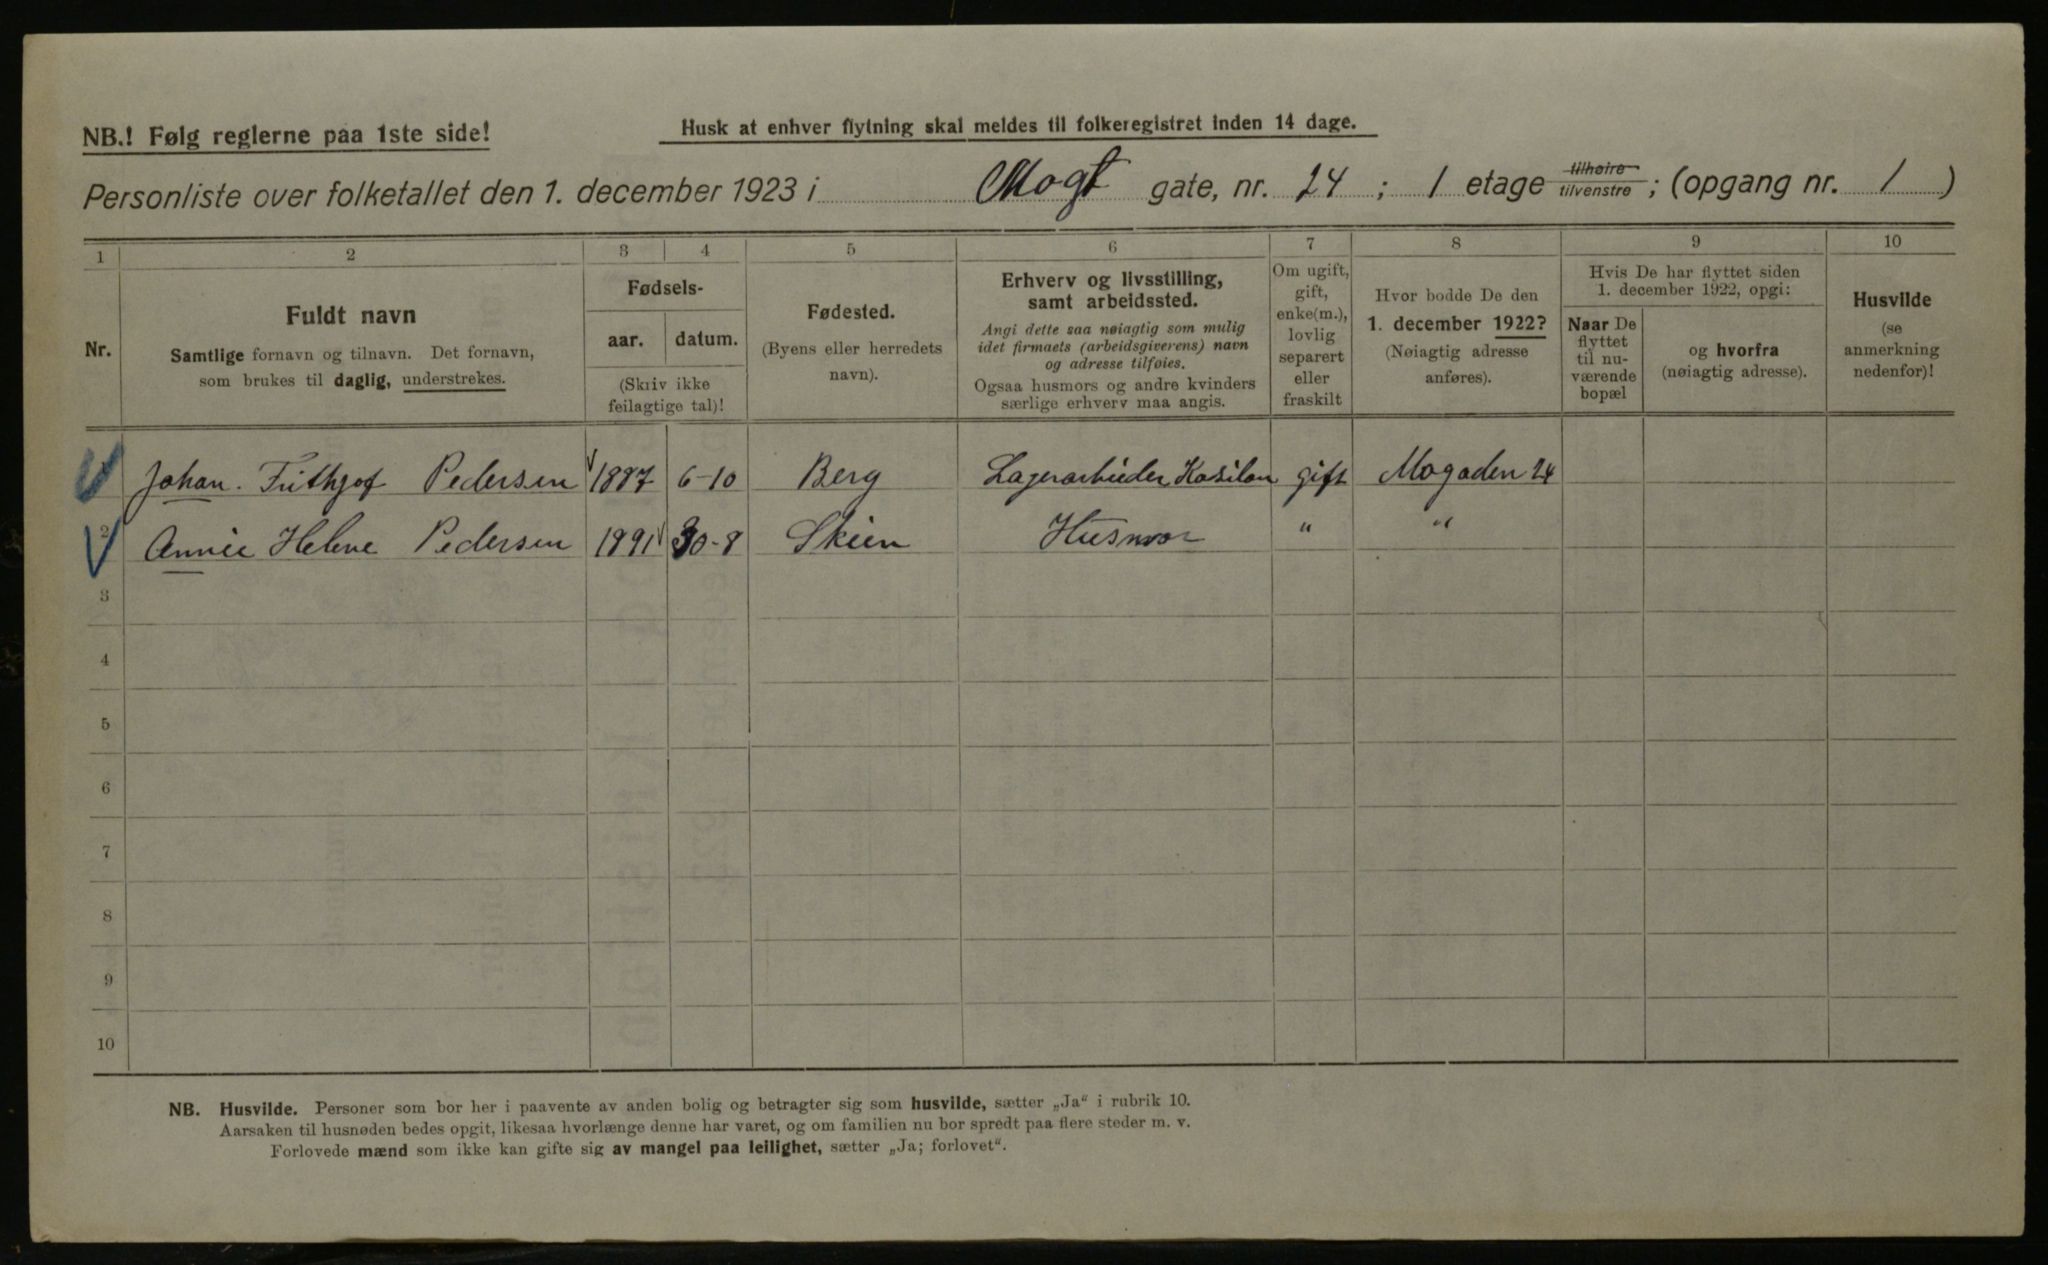 NB.! Følg reglerne paa 1ste side!
Husk at enhver flytning skal meldes til folkeregistret inden 14 dage.
Personliste over folketallet den 1. december 1923 i Mogt gate, nr. 24 ; 1 etage tilhøire tilvenstre ; (opgang nr. 1 )
1 2 3 4 5 6 7 8 9 10
Nr.
Fuldt navn
Samtlige fornavn og tilnavn. Det fornavn,
som brukes til daglig, understrekes.
Fødsels-
aar. datum.
(Skriv ikke
feilagtige tal)!
Fødested.
(Byens eller herredets
navn).
Erhverv og livsstilling,
samt arbeidssted.
Angi dette saa nøiagtig som mulig
idet firmaets (arbeidsgiverens) navn
og adresse tilføies.
Ogsaa husmors og andre kvinders
særlige erhverv maa angis.
Om ugift,
gift,
enke(m.),
lovlig
separert
eller
fraskilt
Hvor bodde De den
1. december 1922?
(Nøiagtig adresse
anføres).
Hvis De har flyttet siden
1. december 1922, opgi:
Naar De
flyttet
til nu-
værende
bopæl
og hvorfra
(nøiagtig adresse).
Husvilde
(se
anmerkning
nedenfor)!
Johan. Frithjof Pedersen 1887 6-10 Berg Lagerarbeider gift Mogaden 24
2 Annie Helene Pedersen 1891 30-8 Skien Husmor " "
3
4
5
6
7
8
9
10
NB. Husvilde. Personer som bor her i paavente av anden bolig og betragter sig som husvilde, sætter „Ja" i rubrik 10.
Aarsaken til husnøden bedes opgit, likesaa hvorlænge denne har varet, og om familien nu bor spredt paa flere steder m. v.
Forlovede mænd som ikke kan gifte sig av mangel paa leilighet, sætter „Ja; forlovet".